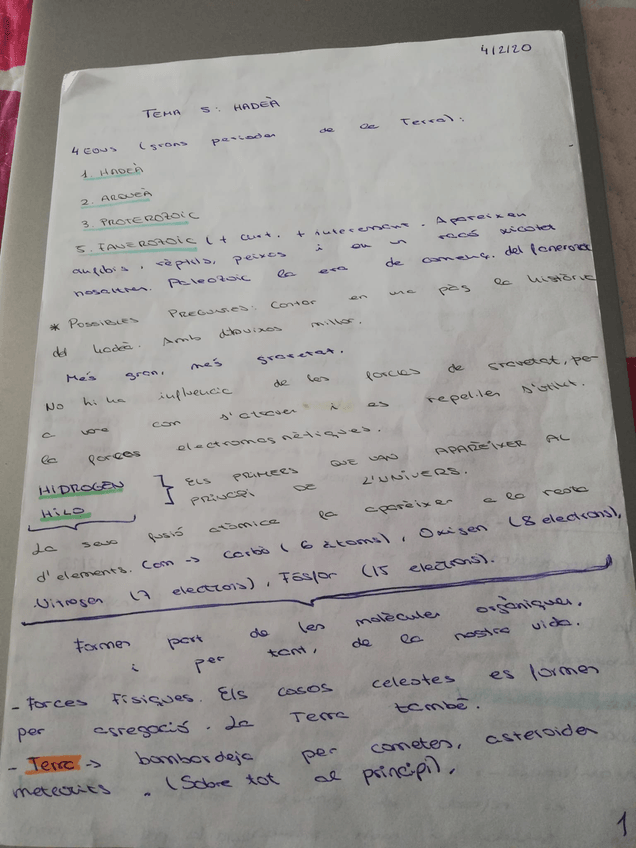 4/2/20
TEMA 5: HADEÀ
4 EOUS (grans períodes de la Terra):
1. HADEÀ
2. ARQUEÀ
3. PROTEROZOIC
5. FANEROZOIC (+ curt, + interessant. Apareixen
amfibis, rèptils, peixos i en un racó xicotet
nosaltres. Paleozoic la era de començ. del fanerozoic
* POSSIBLES PREGUNTES: Contar en una pàg la història
del hadeà. Amb dibuixos millor.
Més gran, més gravetat.
No hi ha influència de les forces de gravetat, per
a vore com s'atrauen i es repelixen s'utilitz.
la forces electromagnètiques.
HIDROGEN
HILO
} ELS PRIMERS QUE VAN APARÈIXER AL
PRINCIPI DE L'UNIVERS.
La seua fusió atòmica fa aparèixer a la resta
d'elements. Com -> Carbó (6 àtoms), Oxigen (8 electrons),
Nitrogen (7 electrois), Fósfor (15 electrons).
Formen part de les molècules orgàniques,
i per tant, de la nostra vida.
- Forces físiques. Els cosos celestes es formen
per agregació. La Terra també.
- Terra -> bombardeja per cometes, asteroides
meteorits. (Sobre tot al principi).
1